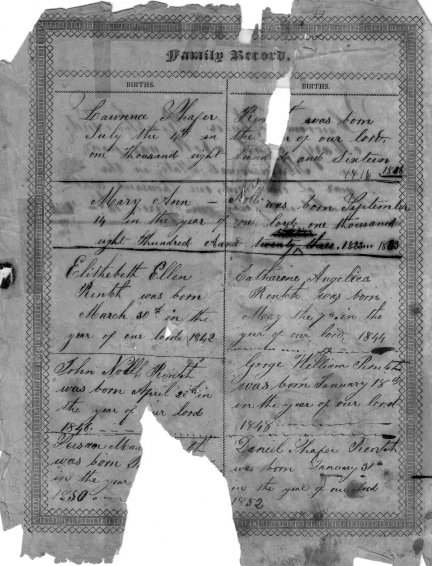 Family Record.
BIRTHS.
BIRTHS.
Lawrence Shafer
July the 4th in
one thousand eight
was born
the of our lord,
and Sixteen
1816
Mary Ann — was born September
14 in the year of our lord one thousand
eight Hundred and twenty three. 1823
Elishebeth Ellen
Rentch was born
March 30th in the
year of our lord 1842
Catharine Angelica
Rentch was born
May the 7th in the
year of our lord 1844
John Noll Rentch
was born April 26th in
the year of our lord
1846
George William Rentch
was born January 18th
in the year of our lord
1848
Susan
was born
in the year
1850
Daniel Shafer Rentch
was born January 31st
in the year of our lord
1852